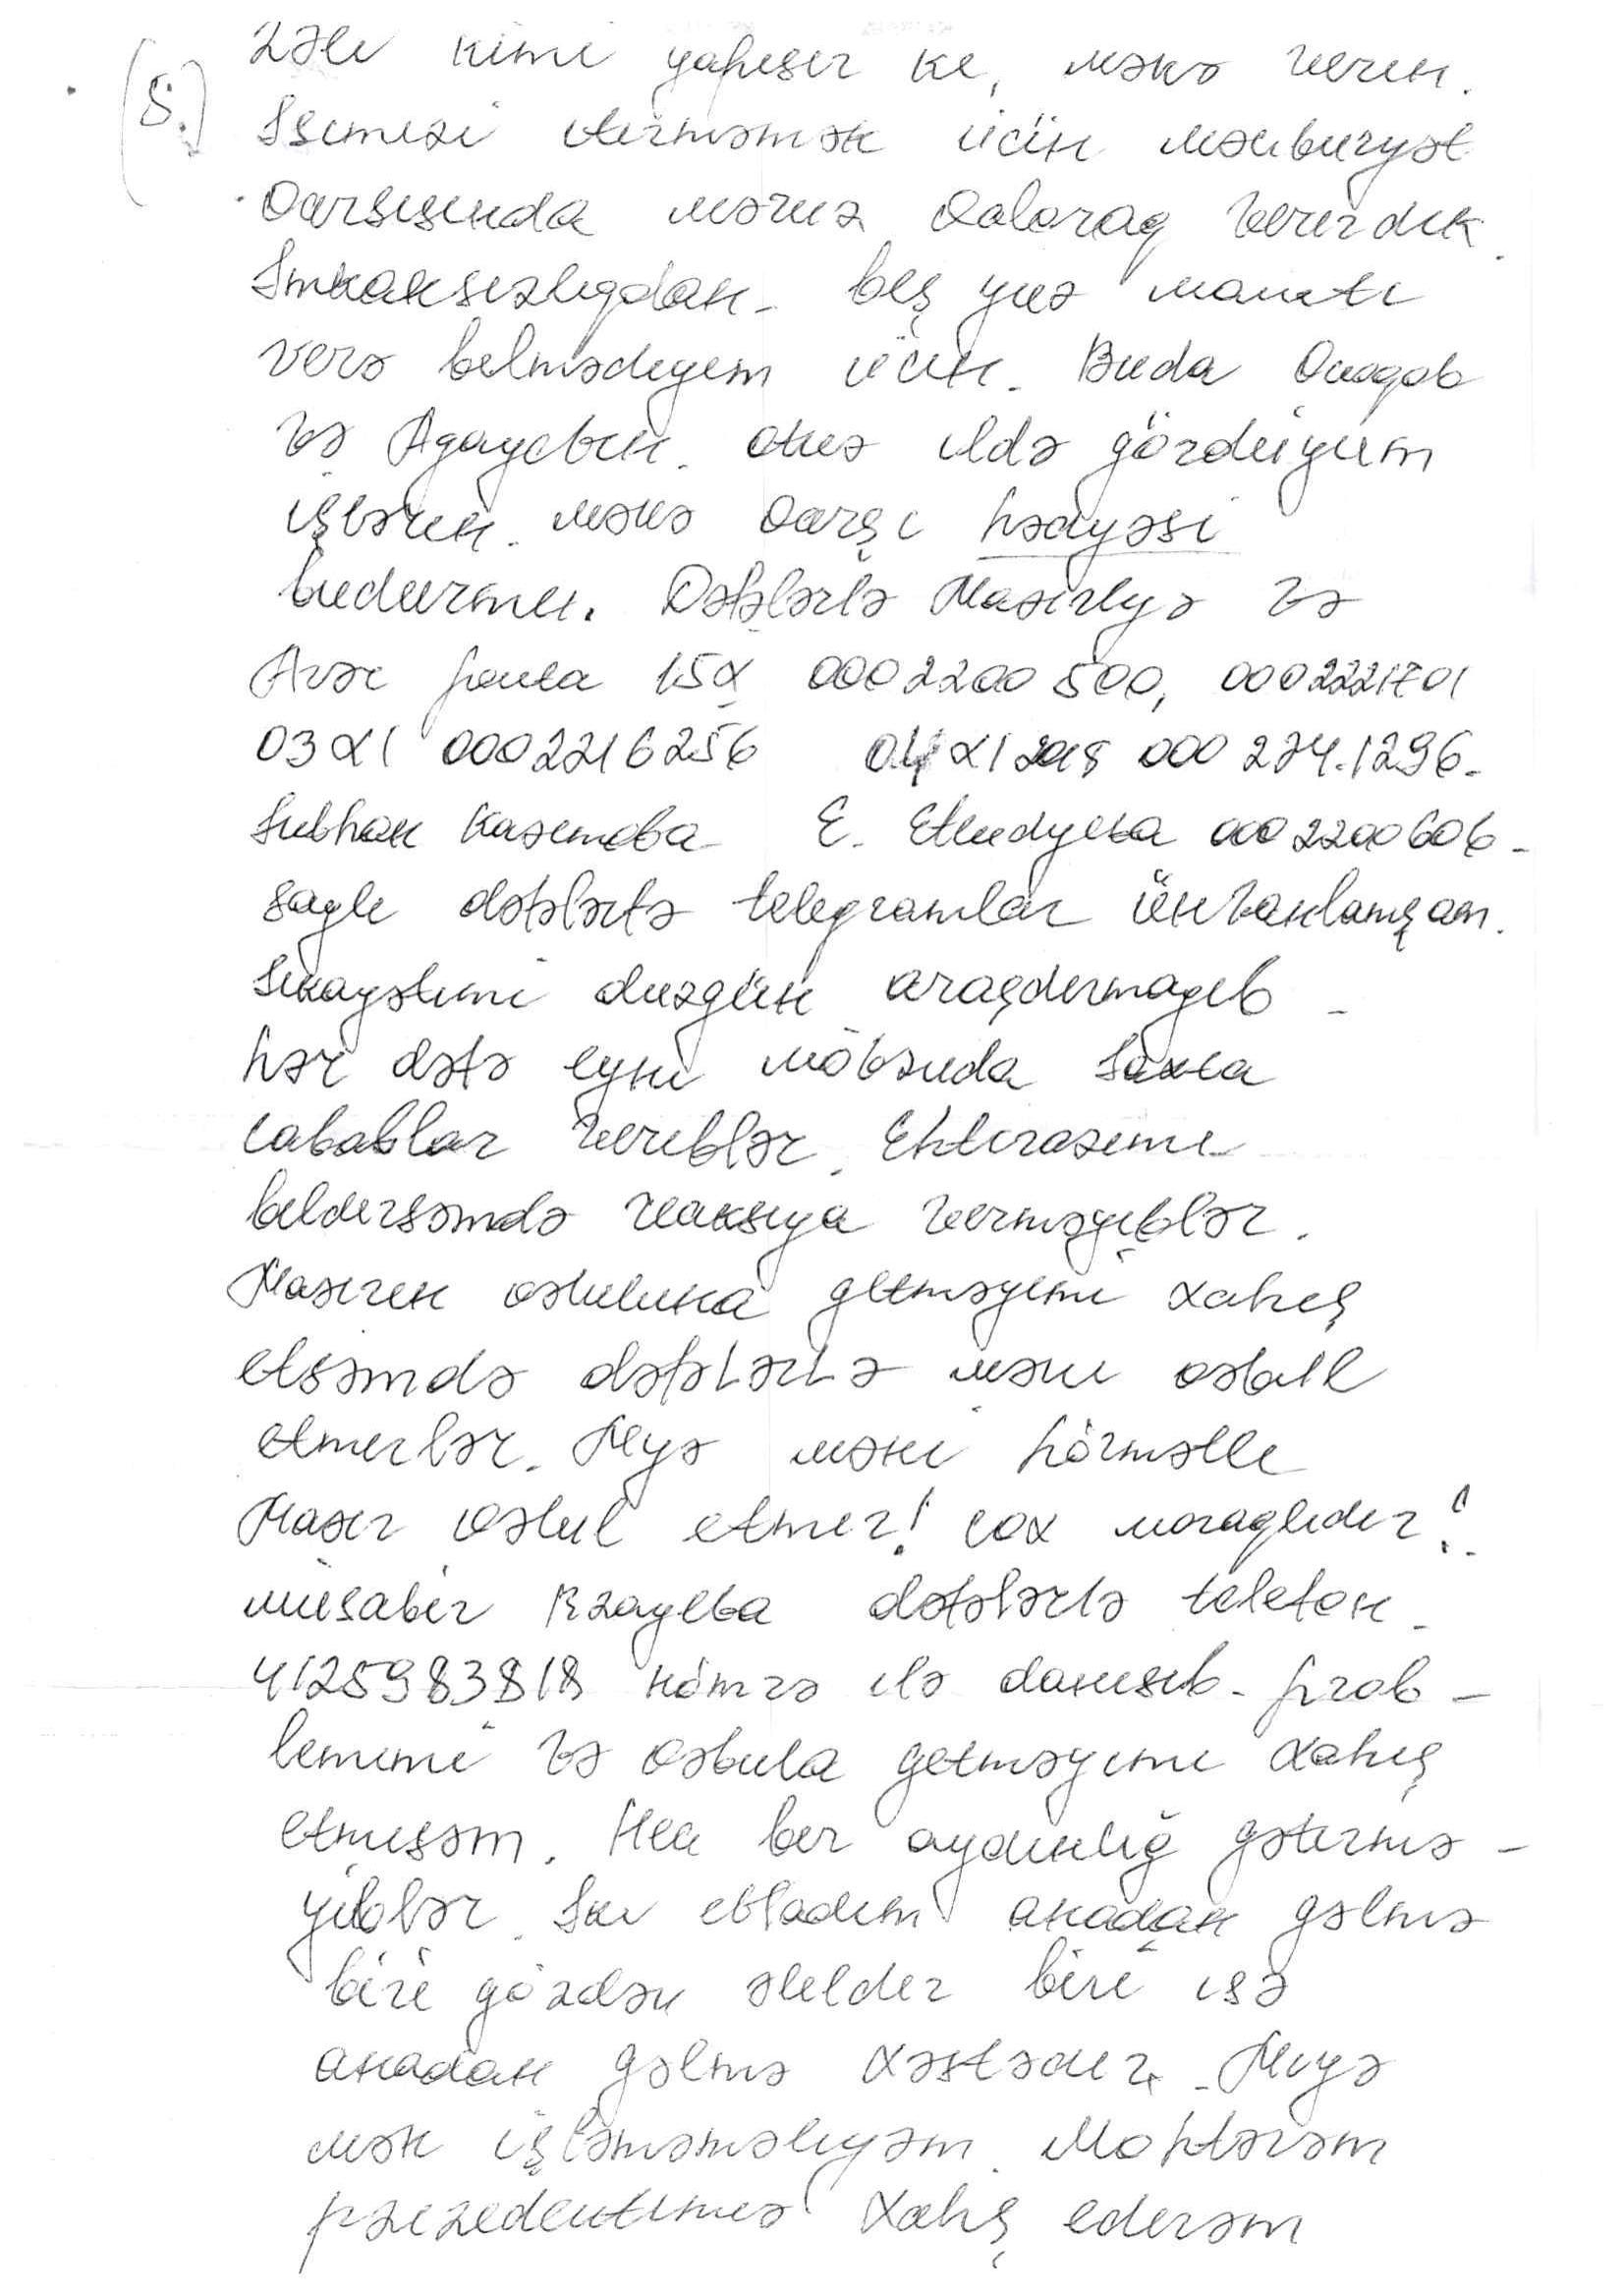 (5.)
zəli kimi yapışır ki, mənə verin.
İşimizi itirməmək üçün məcburiyət
qarşısında məruz qalaraq verirdik.
İmkansızlıqdan beş yüz manatı
verə bilmədiyim üçün. Buda
və Agayevin otuz ildə gördüyüm
işlərin mənə qarşı hədiyəsi
budurmu. Dəfələrlə Nazirliyə və
15X 0002200500, 0002221701
03XI 0002216256 04XI 2015 000 224.1296.
Subhan Kazımova E. 0002200606
saylı dəfələrlə telegramlar ünvanlamışam.
Şikayətimi düzgün araşdırmayıb
hər dəfə eyni mövzuda saxta
cavablar veriblər. Etirazımı
bildirsəmdə reaksiya verməyiblər.
Nazirin qəbuluna getməyimi xahiş
etsəmdə dəfələrlə məni qəbul
etmirlər. Niyə məni hörmətli
Nazir qəbul etmir! Çox maraqlıdır!
müşavir Rzayeva dəfələrlə telefon
4125983818 nömrə ilə danışıb prob-
lemimi və qəbula getməyimi xahiş
etmişəm. Heç bir aydınlığ gətirmə-
yiblər. İki evladım anadan gəlmə
biri gözdən əlildir biri isə
anadan gəlmə xəstədir. Niyə
mən işləməməliyəm. Möhtərəm
prezidentimə xahiş edirəm